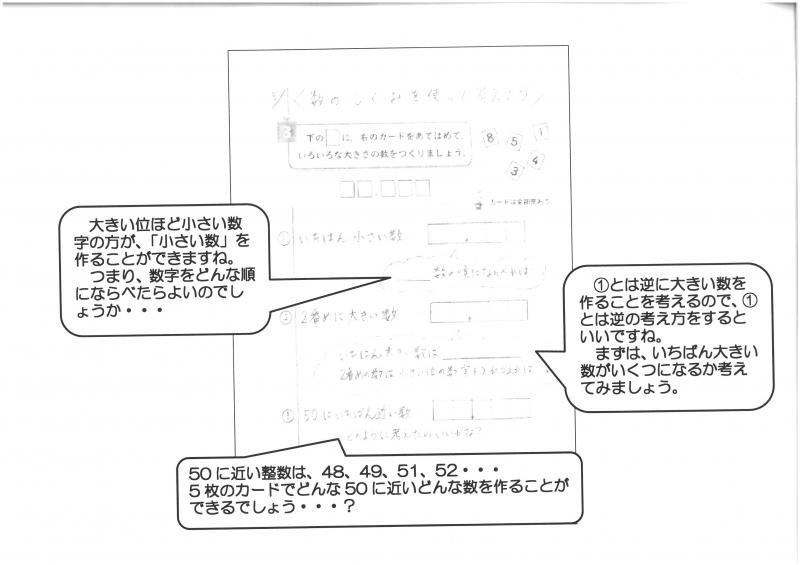 〈数のしくみを使って考えよう〉
3
下の□に、右のカードをあてはめて、
いろいろな大きさの数をつくりましょう。
8 5 1
3 4
カードは全部使おう。
① いちばん 小さい数
数の順にならべれば
大きい位ほど小さい数
字の方が、「小さい数」を
作ることができますね。
つまり、数字をどんな順
にならべたらよいのでし
ょうか・・・
② 2番めに大きい数
いちばん大きい数は
2番めの数は小さい位の数字を
①とは逆に大きい数を
作ることを考えるので、①
とは逆の考え方をすると
いいですね。
まずは、いちばん大きい
数がいくつになるか考え
てみましょう。
50にいちばん近い数
どのように考えたらいいかな?
50に近い整数は、48、49、51、52・・・
5枚のカードでどんな50に近いどんな数を作ることが
できるでしょう・・・?